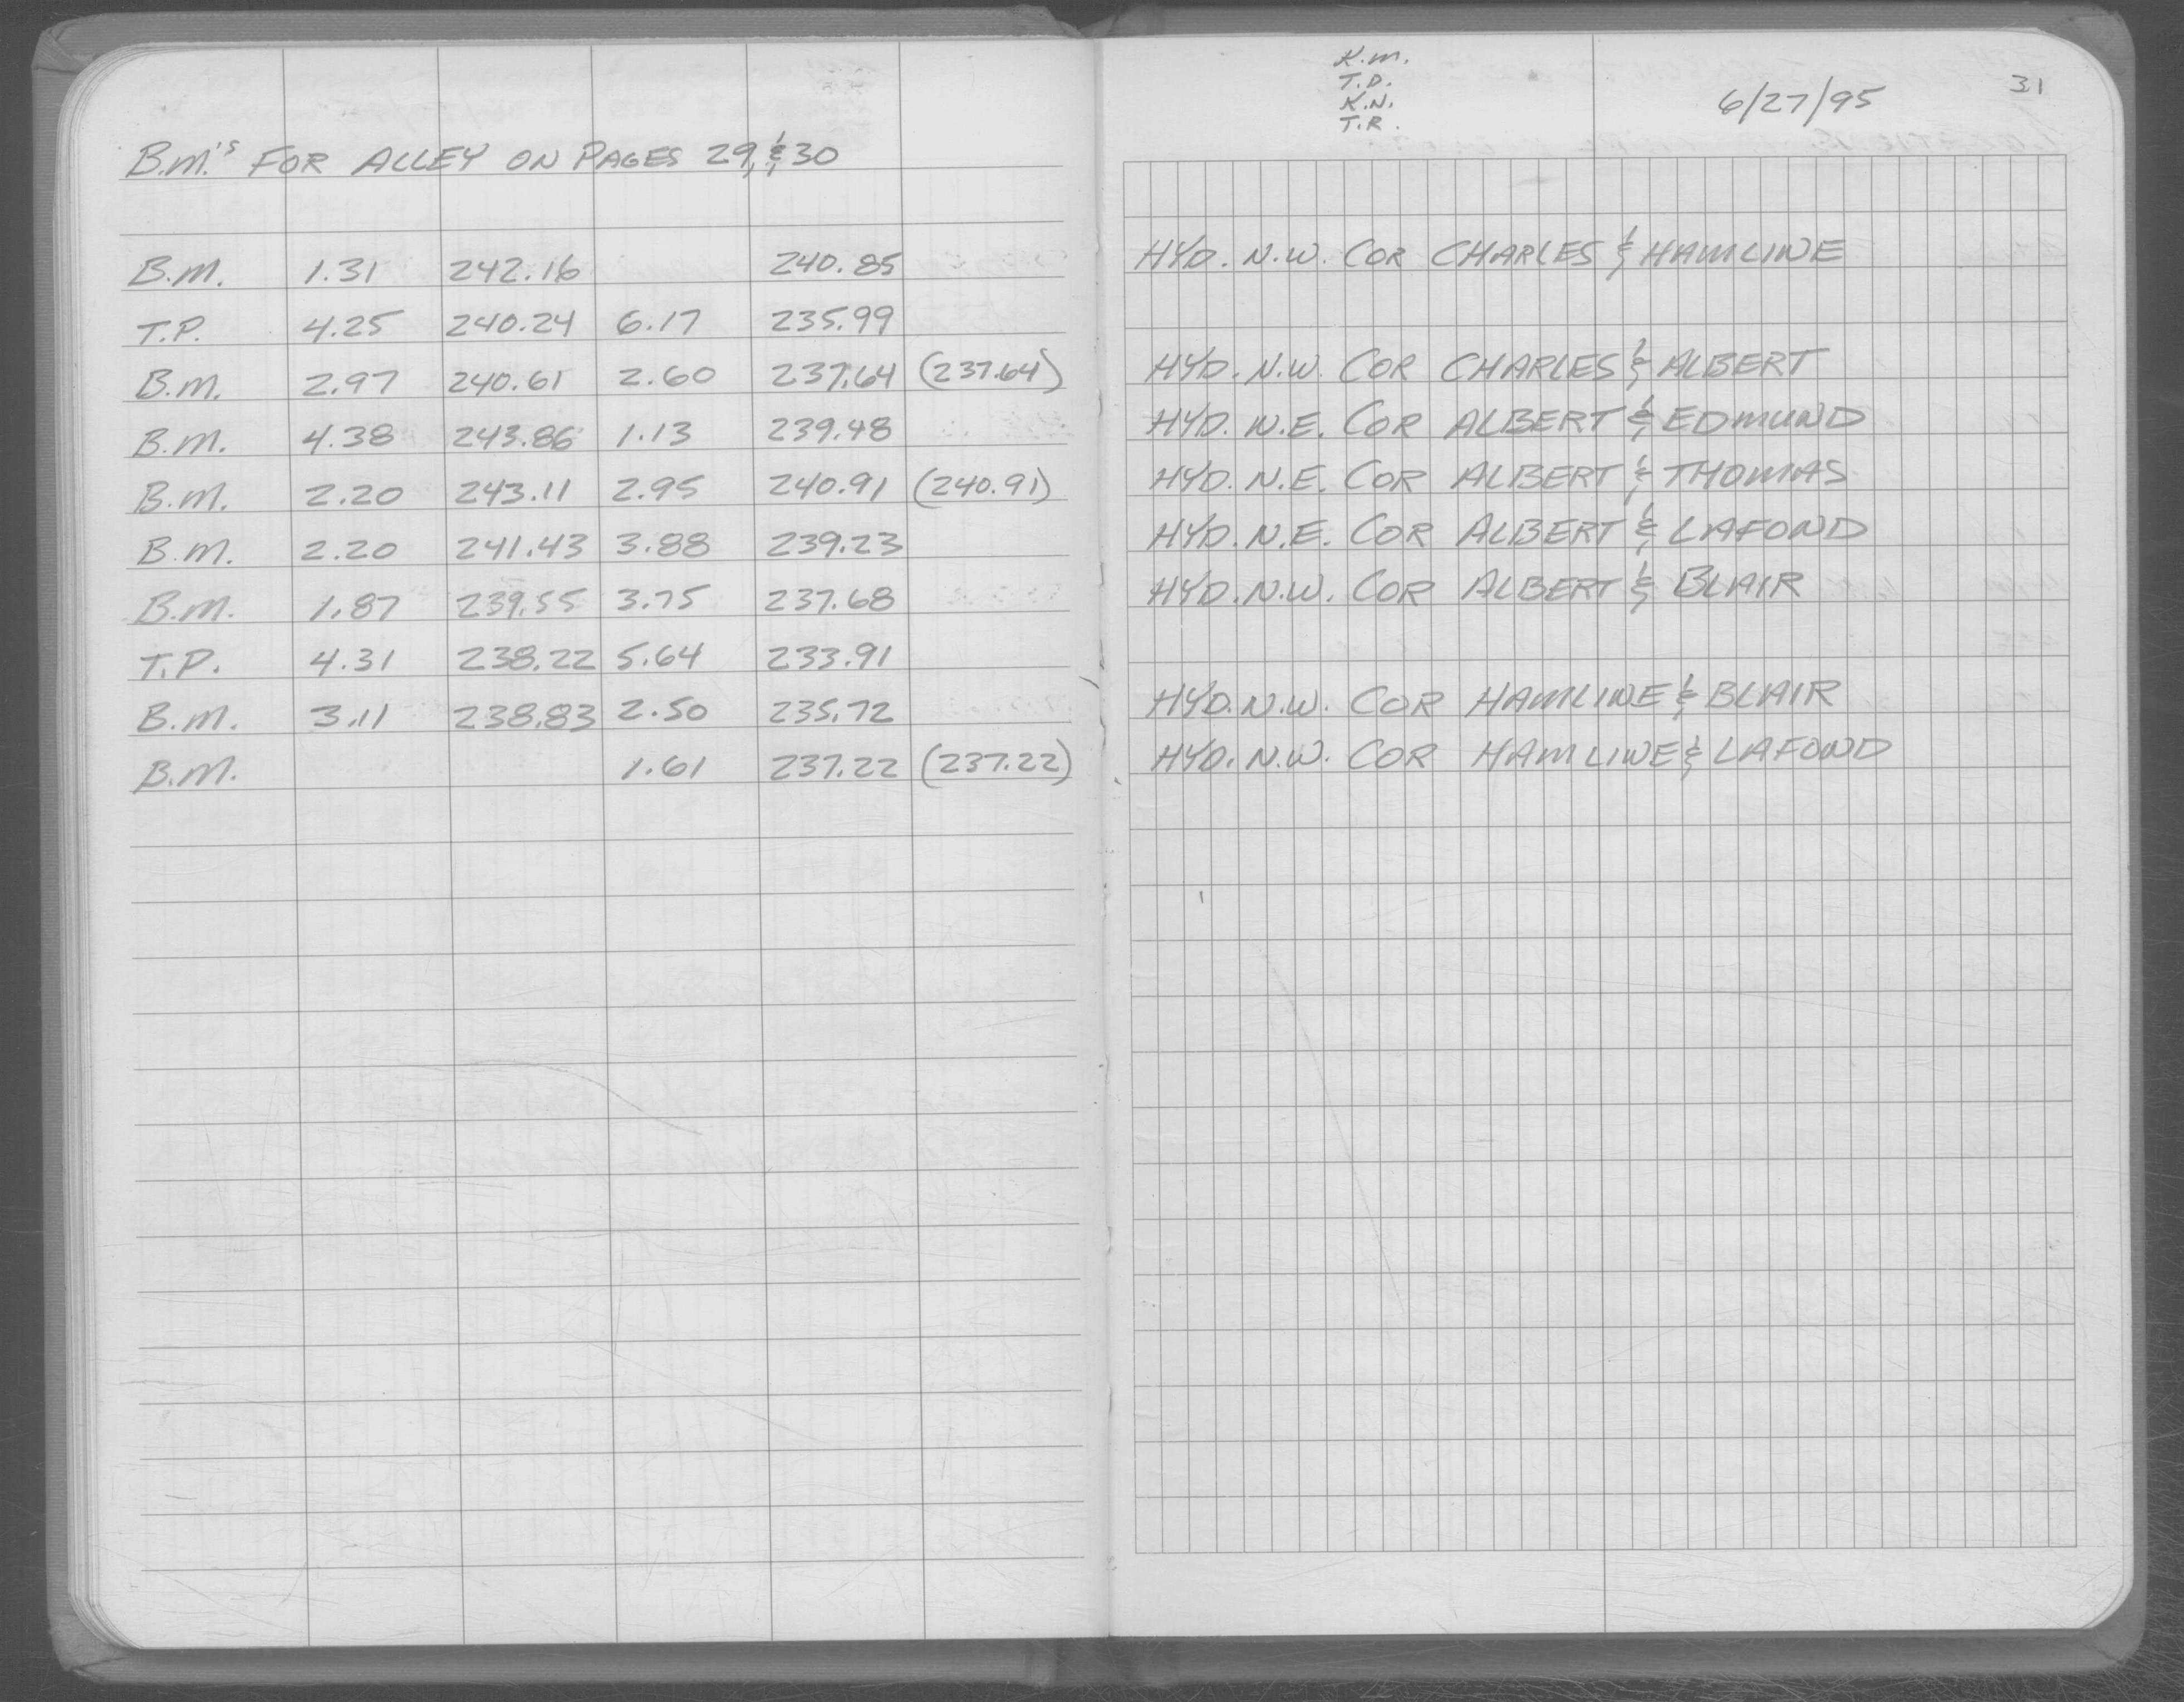 B.M.'s FOR ALLEY ON PAGES 29, & 30
B.M. 1.31 242.16 240.85
T.P. 4.25 240.24 6.17 235.99
B.M. 2.97 240.61 2.60 237.64 (237.64)
B.M. 4.38 243.86 1.13 239.48
B.M. 2.20 243.11 2.95 240.91 (240.91)
B.M. 2.20 241.43 3.88 239.23
B.M. 1.87 239.55 3.75 237.68
T.P. 4.31 238.22 5.64 233.91
B.M. 3.11 238.83 2.50 235.72
B.M. 1.61 237.22 (237.22)
K.M.
T.D.
K.N.
T.R.
6/27/95
31
HYD. N.W. COR CHARLES & HAMLINE
HYD. N.W. COR CHARLES & ALBERT
HYD. N.E. COR ALBERT & EDMUND
HYD. N.E. COR ALBERT & THOMAS
HYD. N.E. COR ALBERT & LAFOND
HYD. N.W. COR ALBERT & BLAIR
HYD. N.W. COR HAMLINE & BLAIR
HYD. N.W. COR HAMLINE & LAFOND